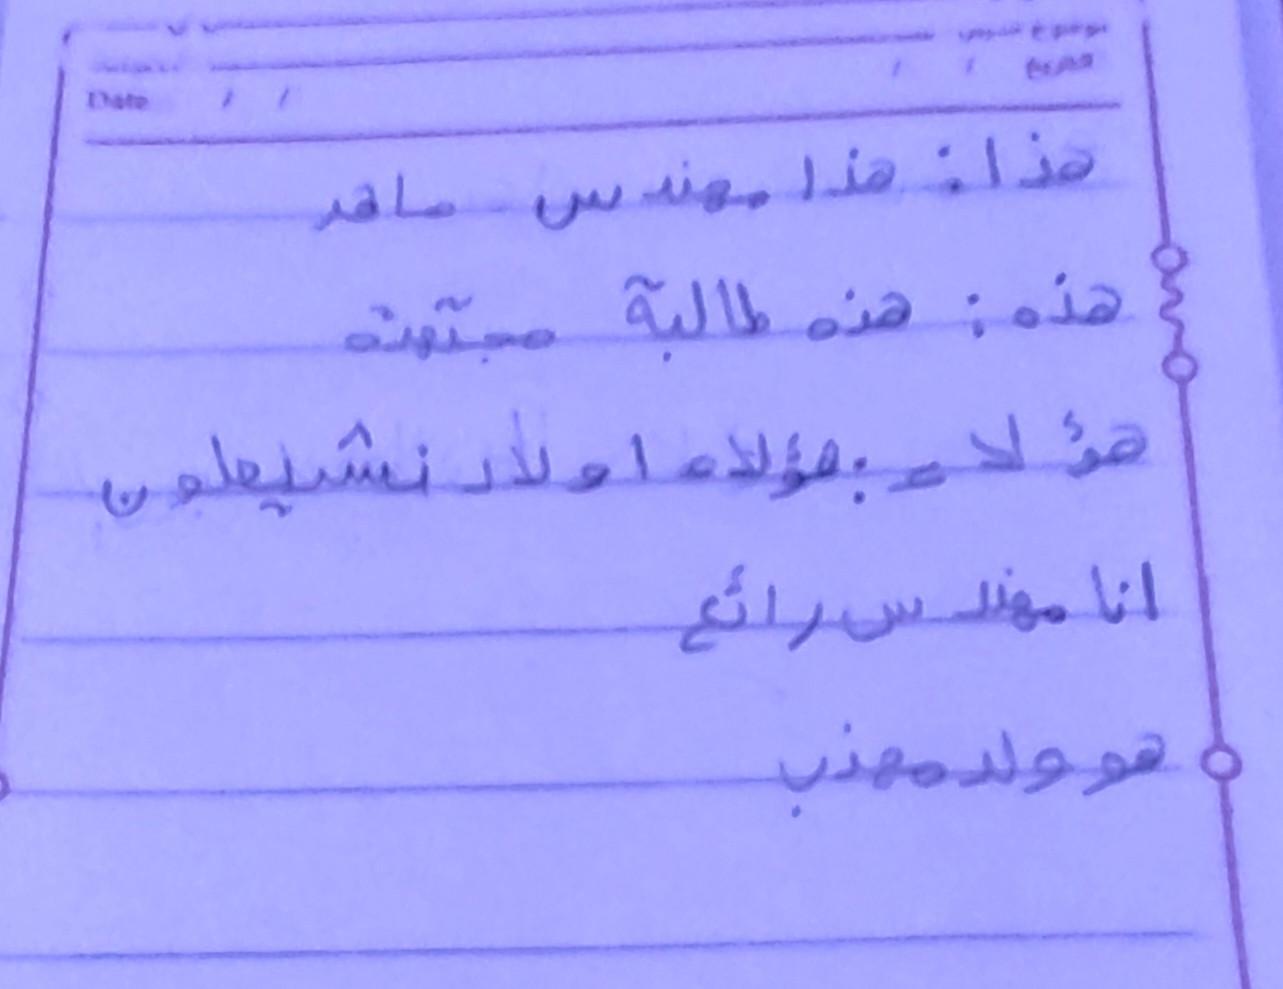 Date / /
/ / التاريخ
هذا : هذا مهندس ماهر
هذه : هذه طالبة مجتهدة
هؤلاء : هؤلاء اولاد نشيطون
انا مهندس رائع
هو ولد مهذب